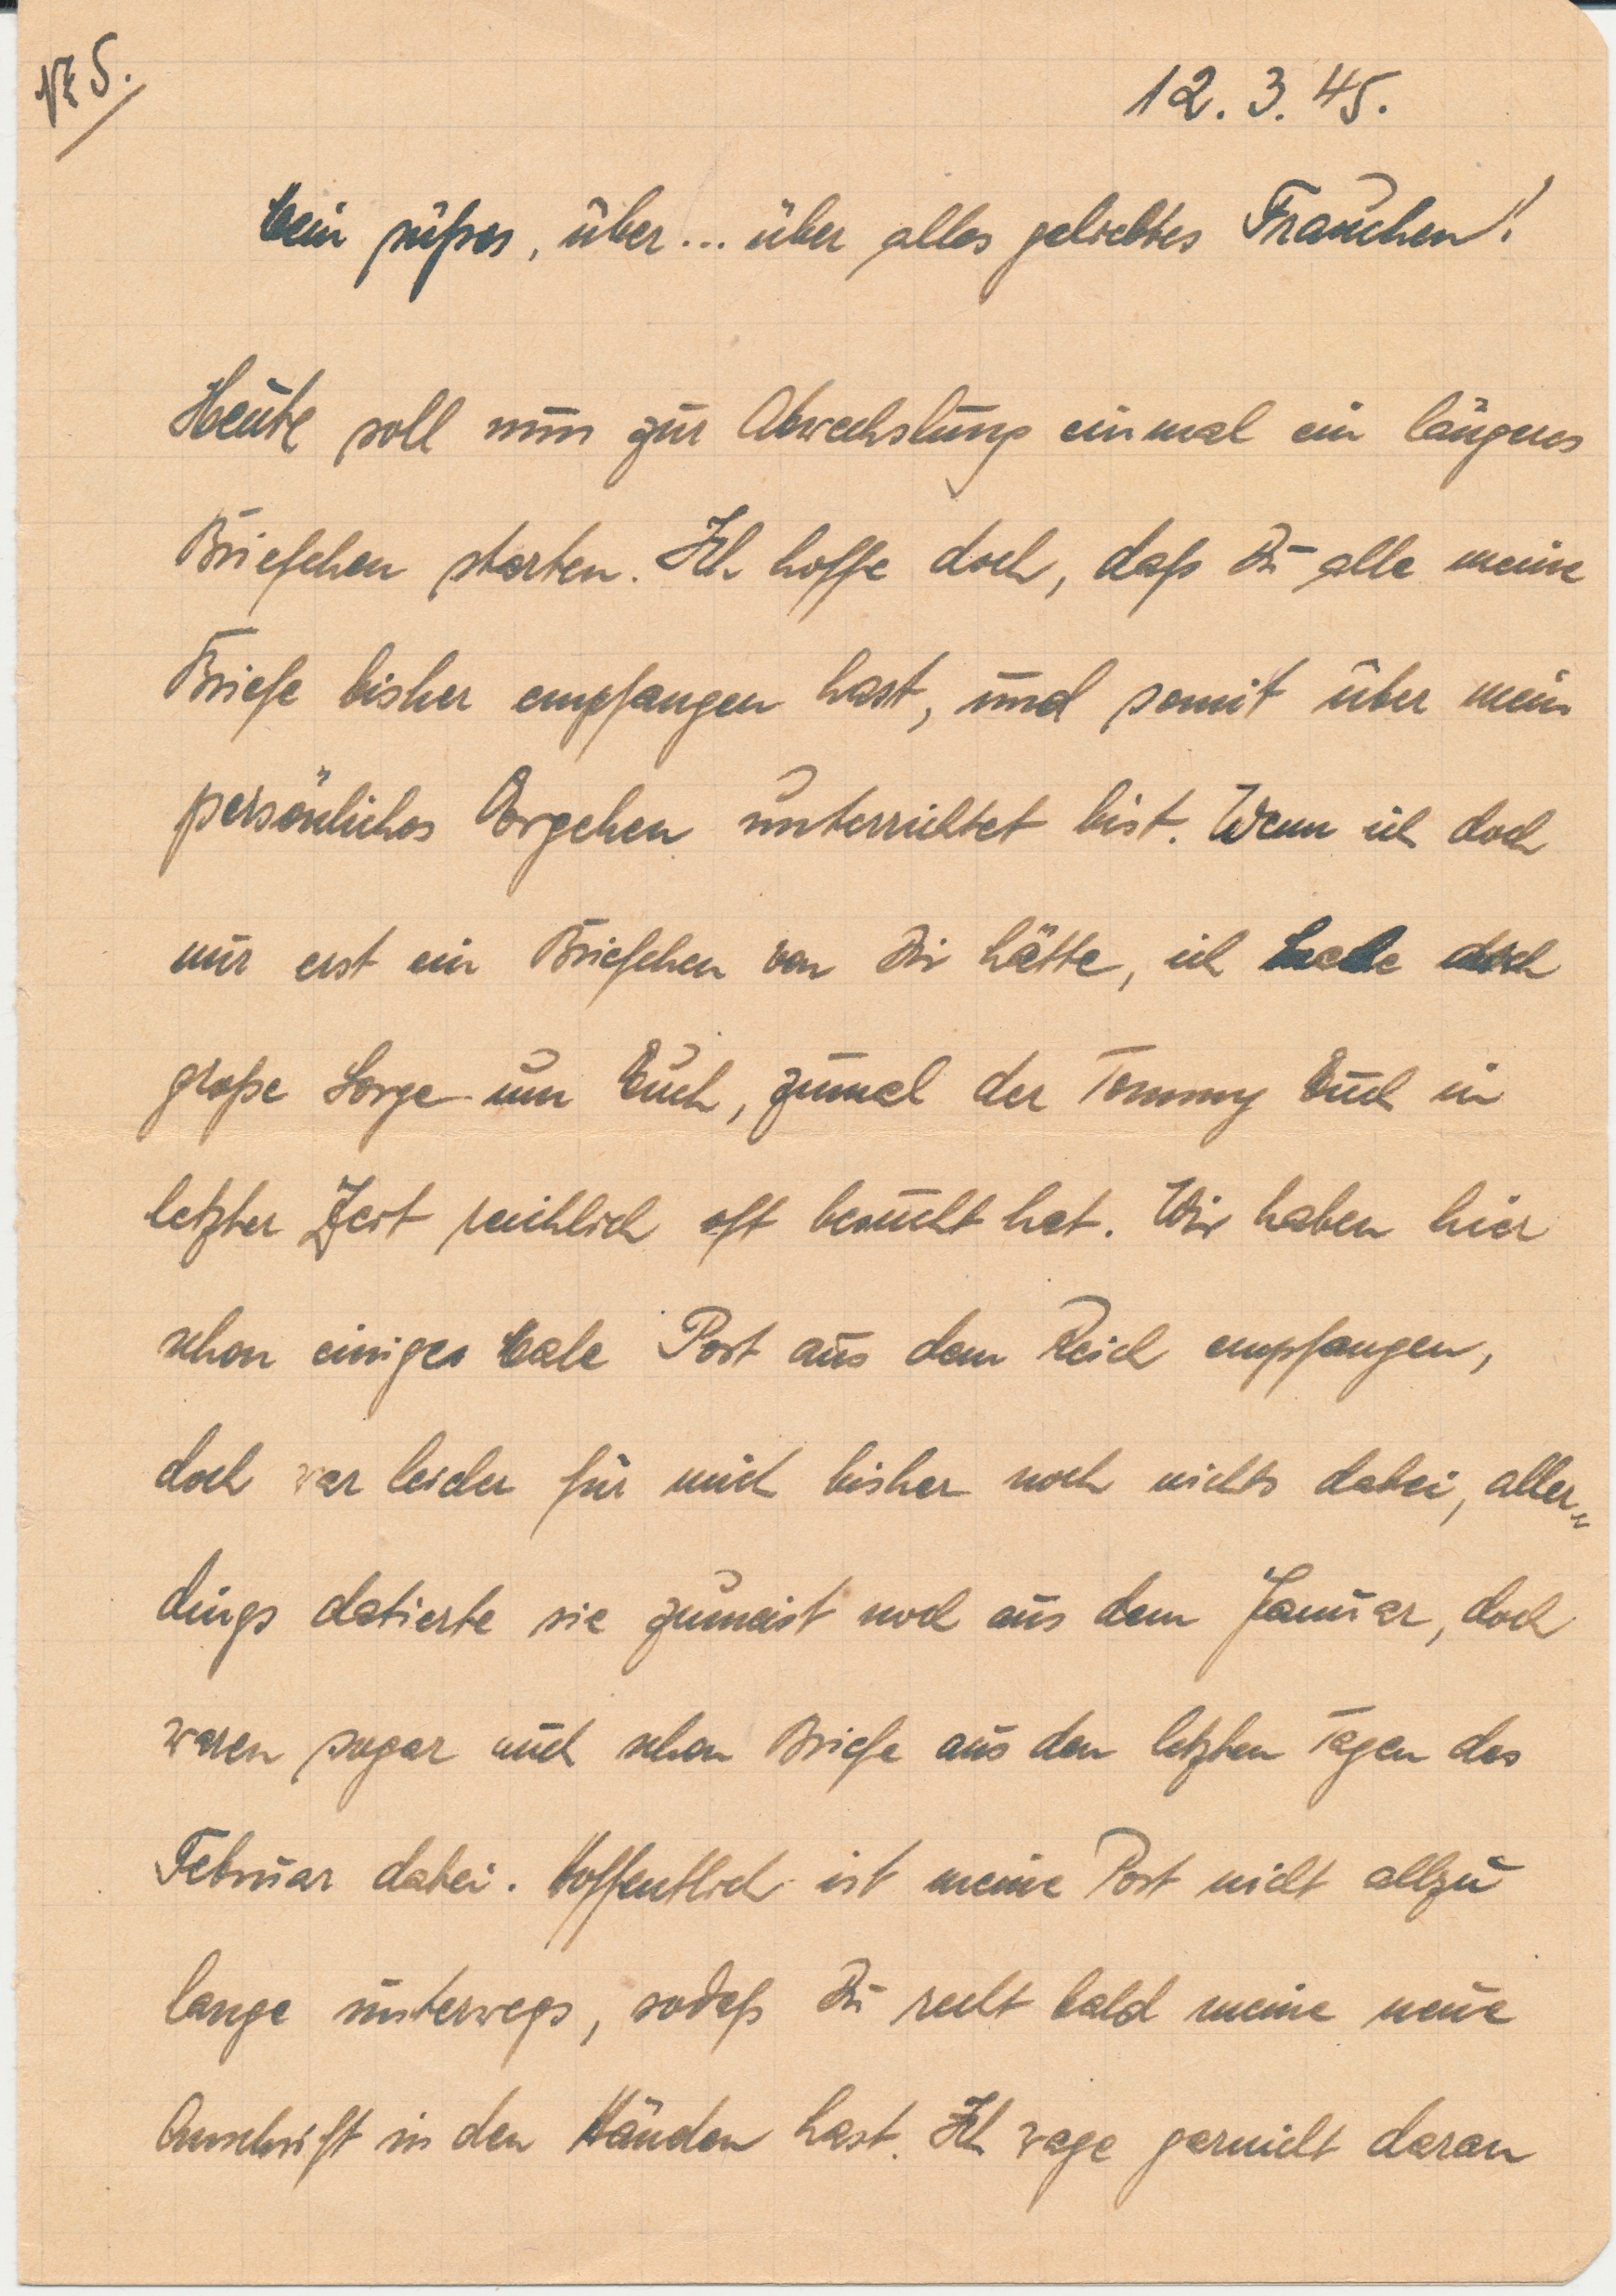 Nr 5.
12. 3. 45.
Mein süßes, über... über alles geliebtes Frauchen!
Heute soll nun zur Abwechslung einmal ein längeres
Briefchen starten. Ich hoffe doch, daß Du alle meine
Briefe bisher empfangen hast, und somit über mein
persönliches Vorgehen unterrichtet bist. Wenn ich doch
nur erst ein Briefchen von Dir hätte, ich habe doch
große Sorge um Euch, zumal der Tommy Euch in
letzter Zeit reichlich oft besucht hat. Wir haben hier
schon einige Male Post aus dem Reich empfangen,
doch war leider für mich bisher noch nichts dabei, aller„
dings datierte sie zumeist noch aus dem Januar, doch
waren sogar auch schon Briefe aus den letzten Tagen des
Februar dabei. Hoffentlich ist meine Post nicht allzu
lange unterwegs, sodaß Du recht bald meine neue
Anschrift in den Händen hast. Ich wage garnicht daran